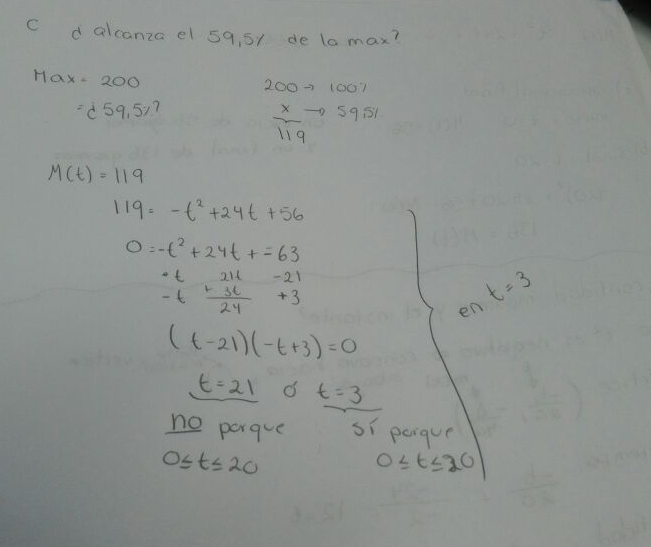 c ¿ alcanza el 59,5% de la max?
Max = 200 200 → 100%
= ¿59,5%? x → 59,5%
119
M(t) = 119
119 = -t² + 24t + 56
0 = -t² + 24t + = 63
t 21t -21
-t + 3t +3
24
(t-21)(-t+3) = 0
en t = 3
t = 21 ó t = 3
no porque sí porque
0 ≤ t ≤ 20 0 ≤ t ≤ 20